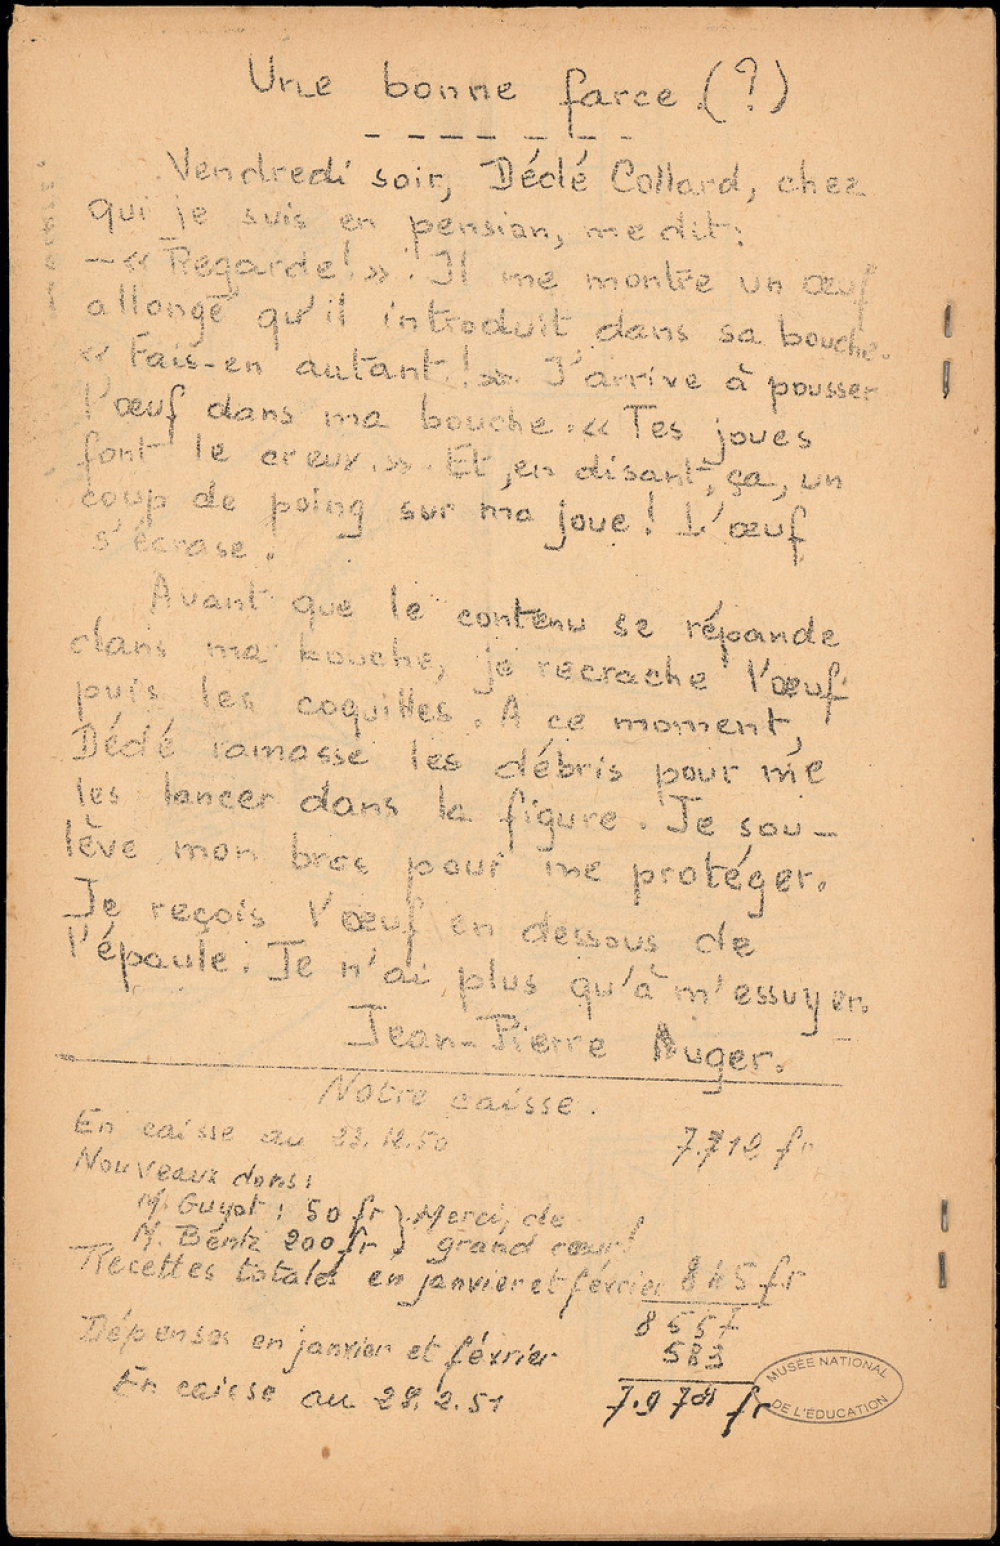 Une bonne farce (?)
Vendredi soir, Dédé Collard, chez
qui je suis en pension, me dit:
— « Regarde! ». Il me montre un œuf
allongé qu'il introduit dans sa bouche.
« Fais-en autant! ». J'arrive à pousser
l'œuf dans ma bouche. « Tes joues
font le creux. ». Et, en disant, ça, un
coup de poing sur ma joue! L'œuf
s'écrase.
Avant que le contenu se répande
dans ma bouche, je recrache l'œuf
puis les coquilles. A ce moment,
Dédé ramasse les débris pour me
les lancer dans la figure. Je sou-
lève mon bras pour me protéger.
Je reçois l'œuf en dessous de
l'épaule. Je n'ai plus qu'à m'essuyer.
Jean-Pierre Auger.
Notre caisse.
En caisse au 23.12.50 7.712 fr
Nouveaux dons:
M. Guyot: 50 fr } Merci, de
M. Bentz 200 fr } grand cœur!
Recettes totales en janvier et février 845 fr
8557
Dépenses en janvier et février 583
En caisse au 28.2.51 7.974 fr
MUSÉE NATIONAL
DE L'ÉDUCATION